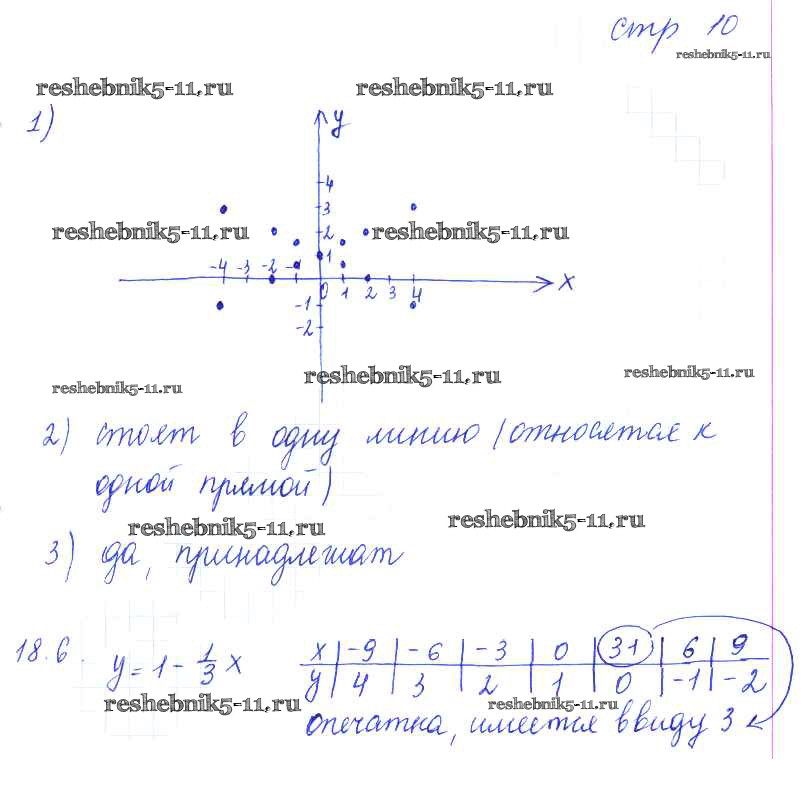 стр 10
reshebnik5-11.ru
reshebnik5-11.ru reshebnik5-11.ru
1)
y
4
3
reshebnik5-11.ru 2 reshebnik5-11.ru
1
-4 -3 -2 -1
0 1 2 3 4 x
-1
-2
reshebnik5-11.ru reshebnik5-11.ru reshebnik5-11.ru
2) стоят в одну линию (относятся к
одной прямой)
reshebnik5-11.ru reshebnik5-11.ru
3) да, принадлежат
18.6. y = 1 - 1/3 x
x | -9 | -6 | -3 | 0 | 31 | 6 | 9
y | 4 | 3 | 2 | 1 | 0 | -1 | -2
reshebnik5-11.ru reshebnik5-11.ru
опечатка, имеется ввиду 3